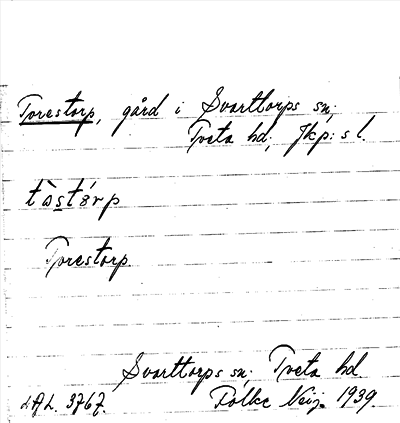 Torestorp, gård i Svarttorps sn,
Tveta hd, Jkp:s l.
tòstórp
Torestorp
Svarttorps sn, Tveta hd
LAL. 3767. Folke Neij. 1939.